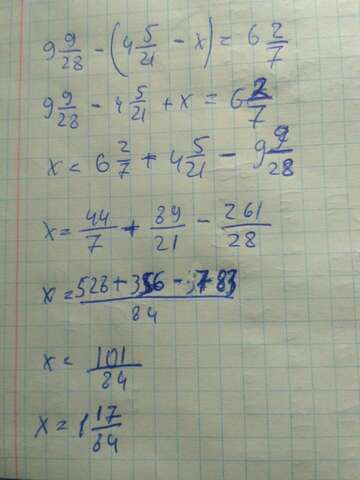 9 9/28 - (4 5/21 - x) = 6 2/7
9 9/28 - 4 5/21 + x = 6 2/7
x = 6 2/7 + 4 5/21 - 9 9/28
x = 44/7 + 89/21 - 261/28
x = 528 + 356 - 783/84
x = 101/84
x = 1 17/84